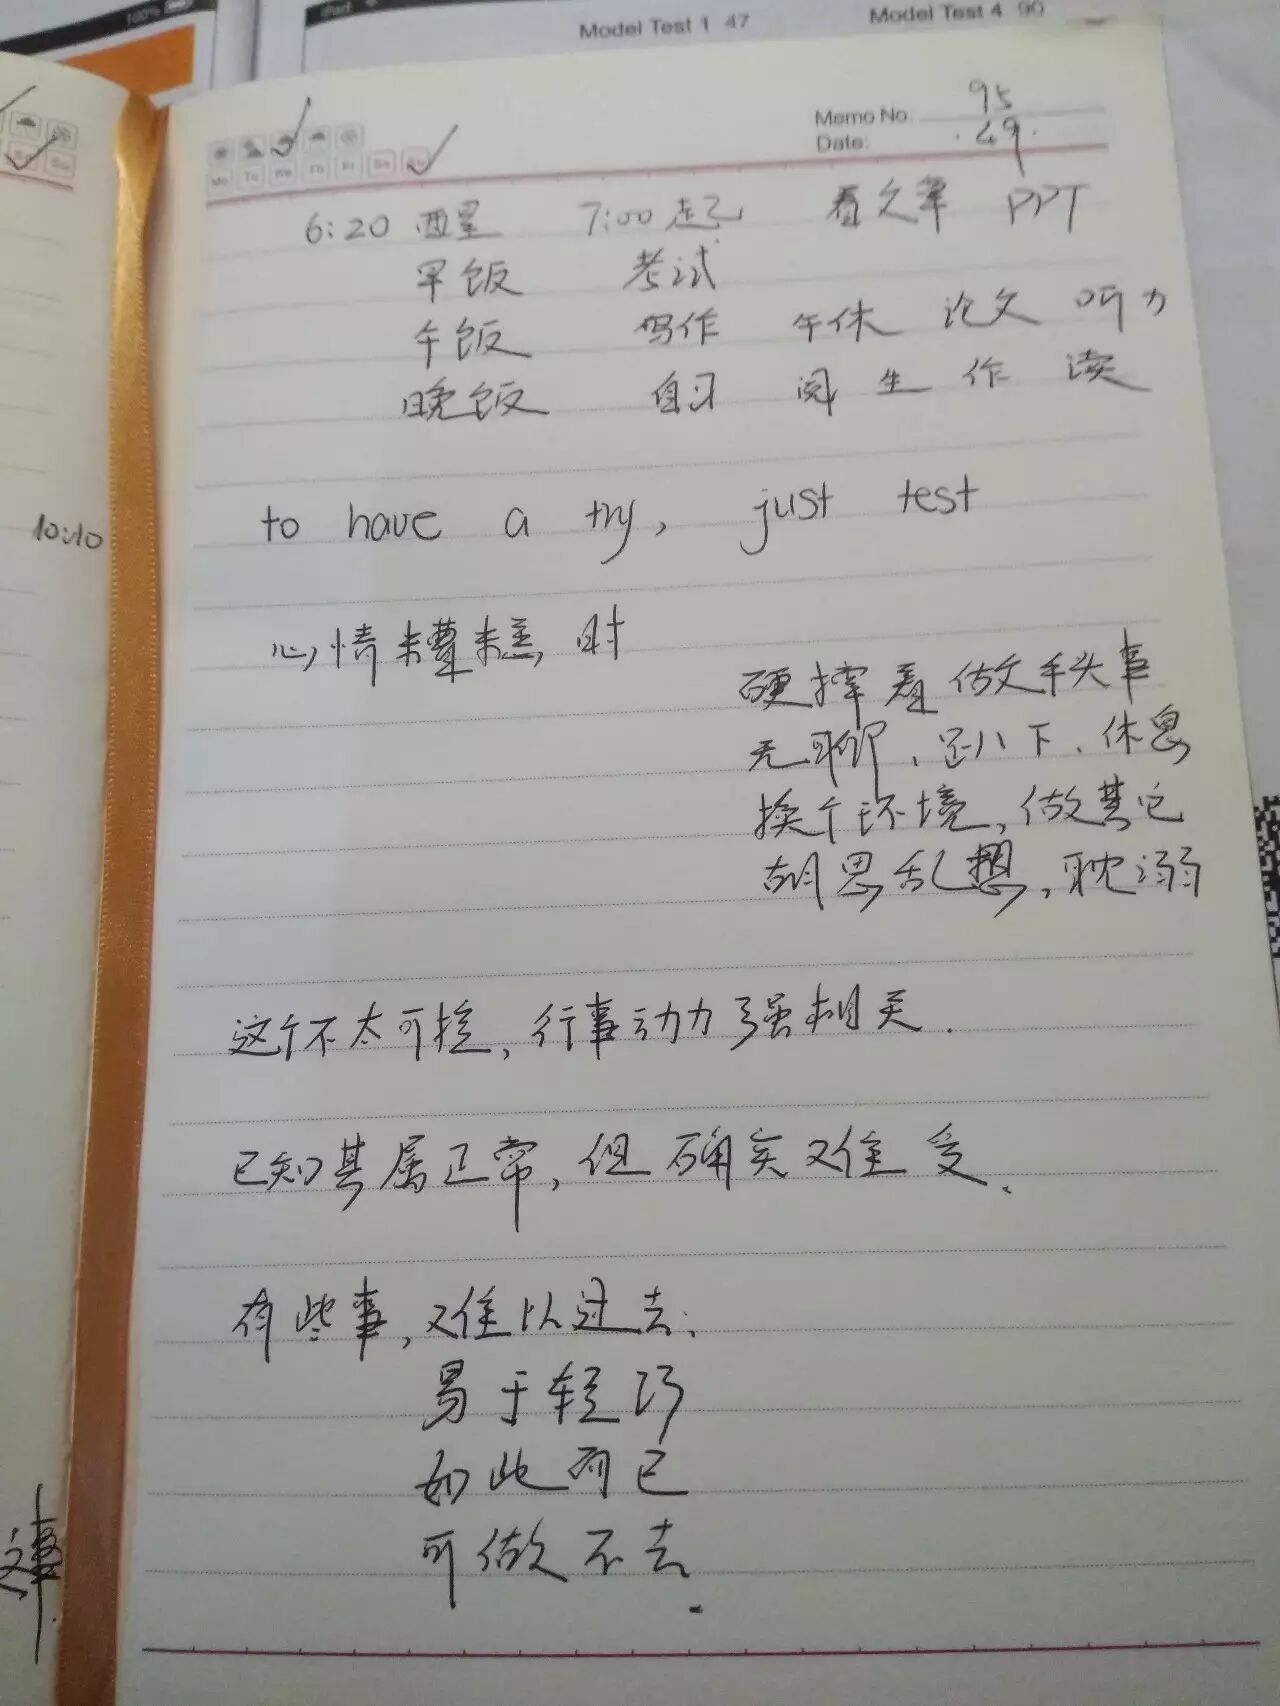 100%
iPad
Model Test 1 47
Model Test 4 90
Memo No. 95
Date: .49.
Mo Tu We Th Fr Sa Su
6:20 醒 7:00 起 看文章 PPT
早饭 考试
午饭 写作 午休 论文 听力
晚饭 自习 阅 生 作 读
10:10
to have a try, just test
心情糟糕时
硬撑着做手头事
无聊、趴下、休息
换个环境,做其它
胡思乱想,耽溺
这个不太可控,行事动力强相关.
已知其属正常,但确实难受.
有些事,难以过去.
易于轻巧
如此而已
可做不去.
事